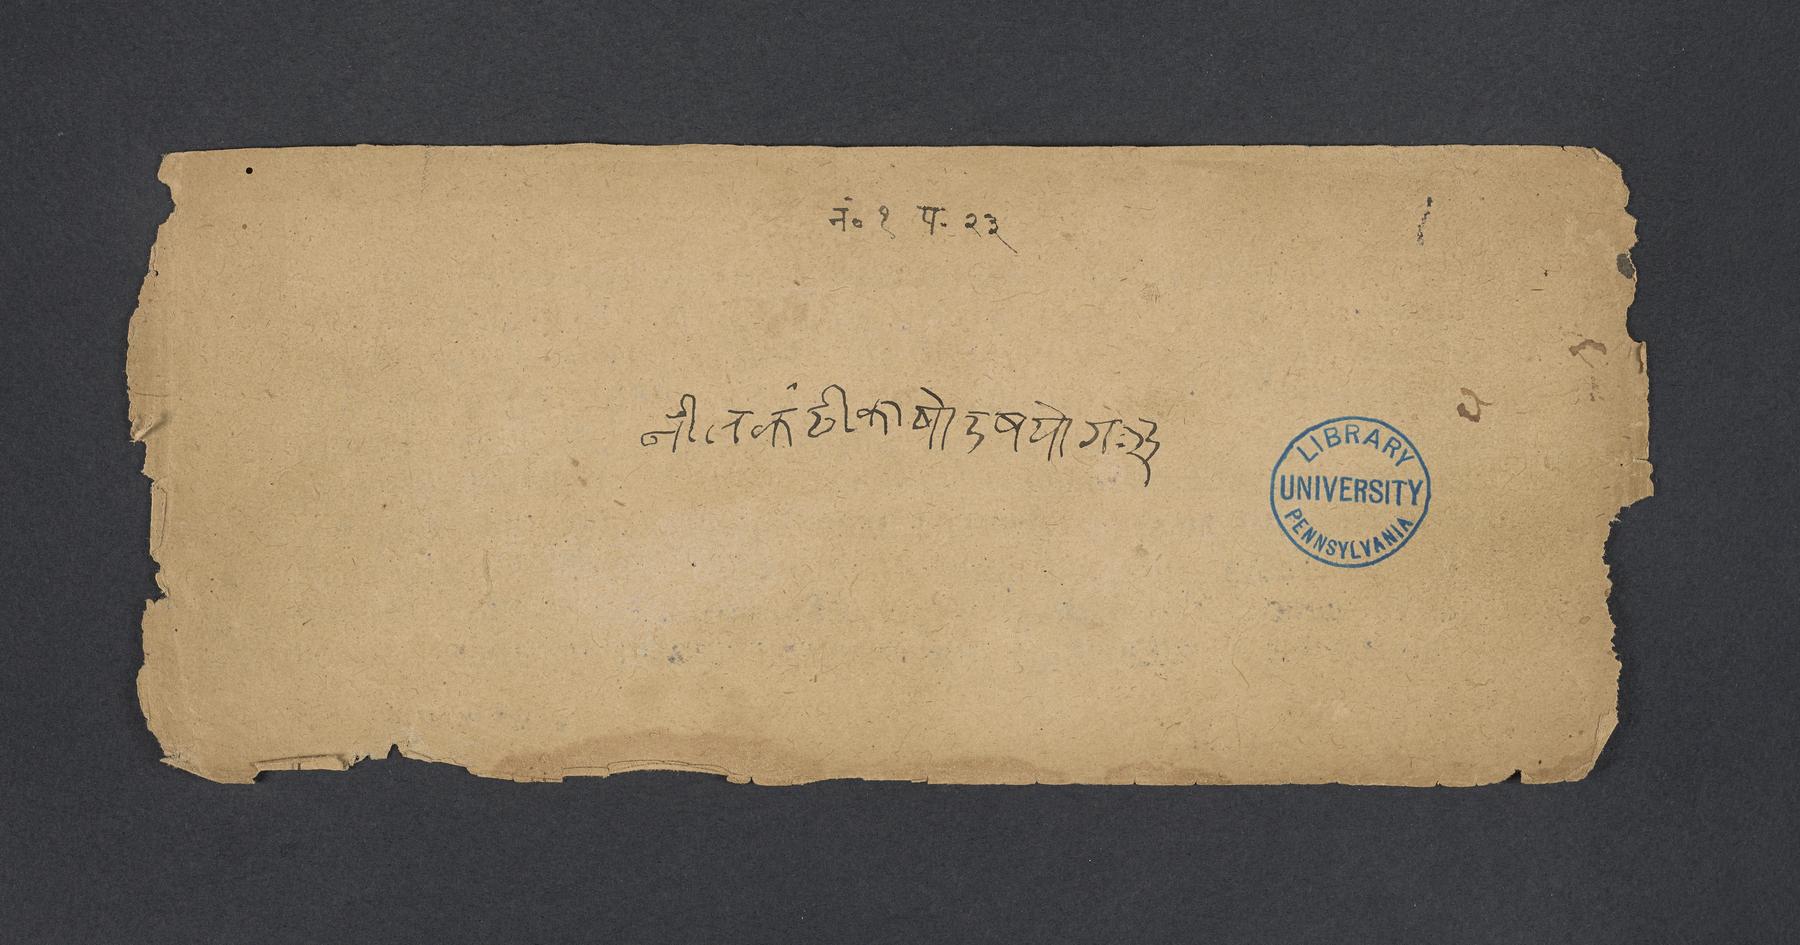 नं० १ प. २३
नीलकंठीकाषोडषयोगः २३
LIBRARY
UNIVERSITY
PENNSYLVANIA